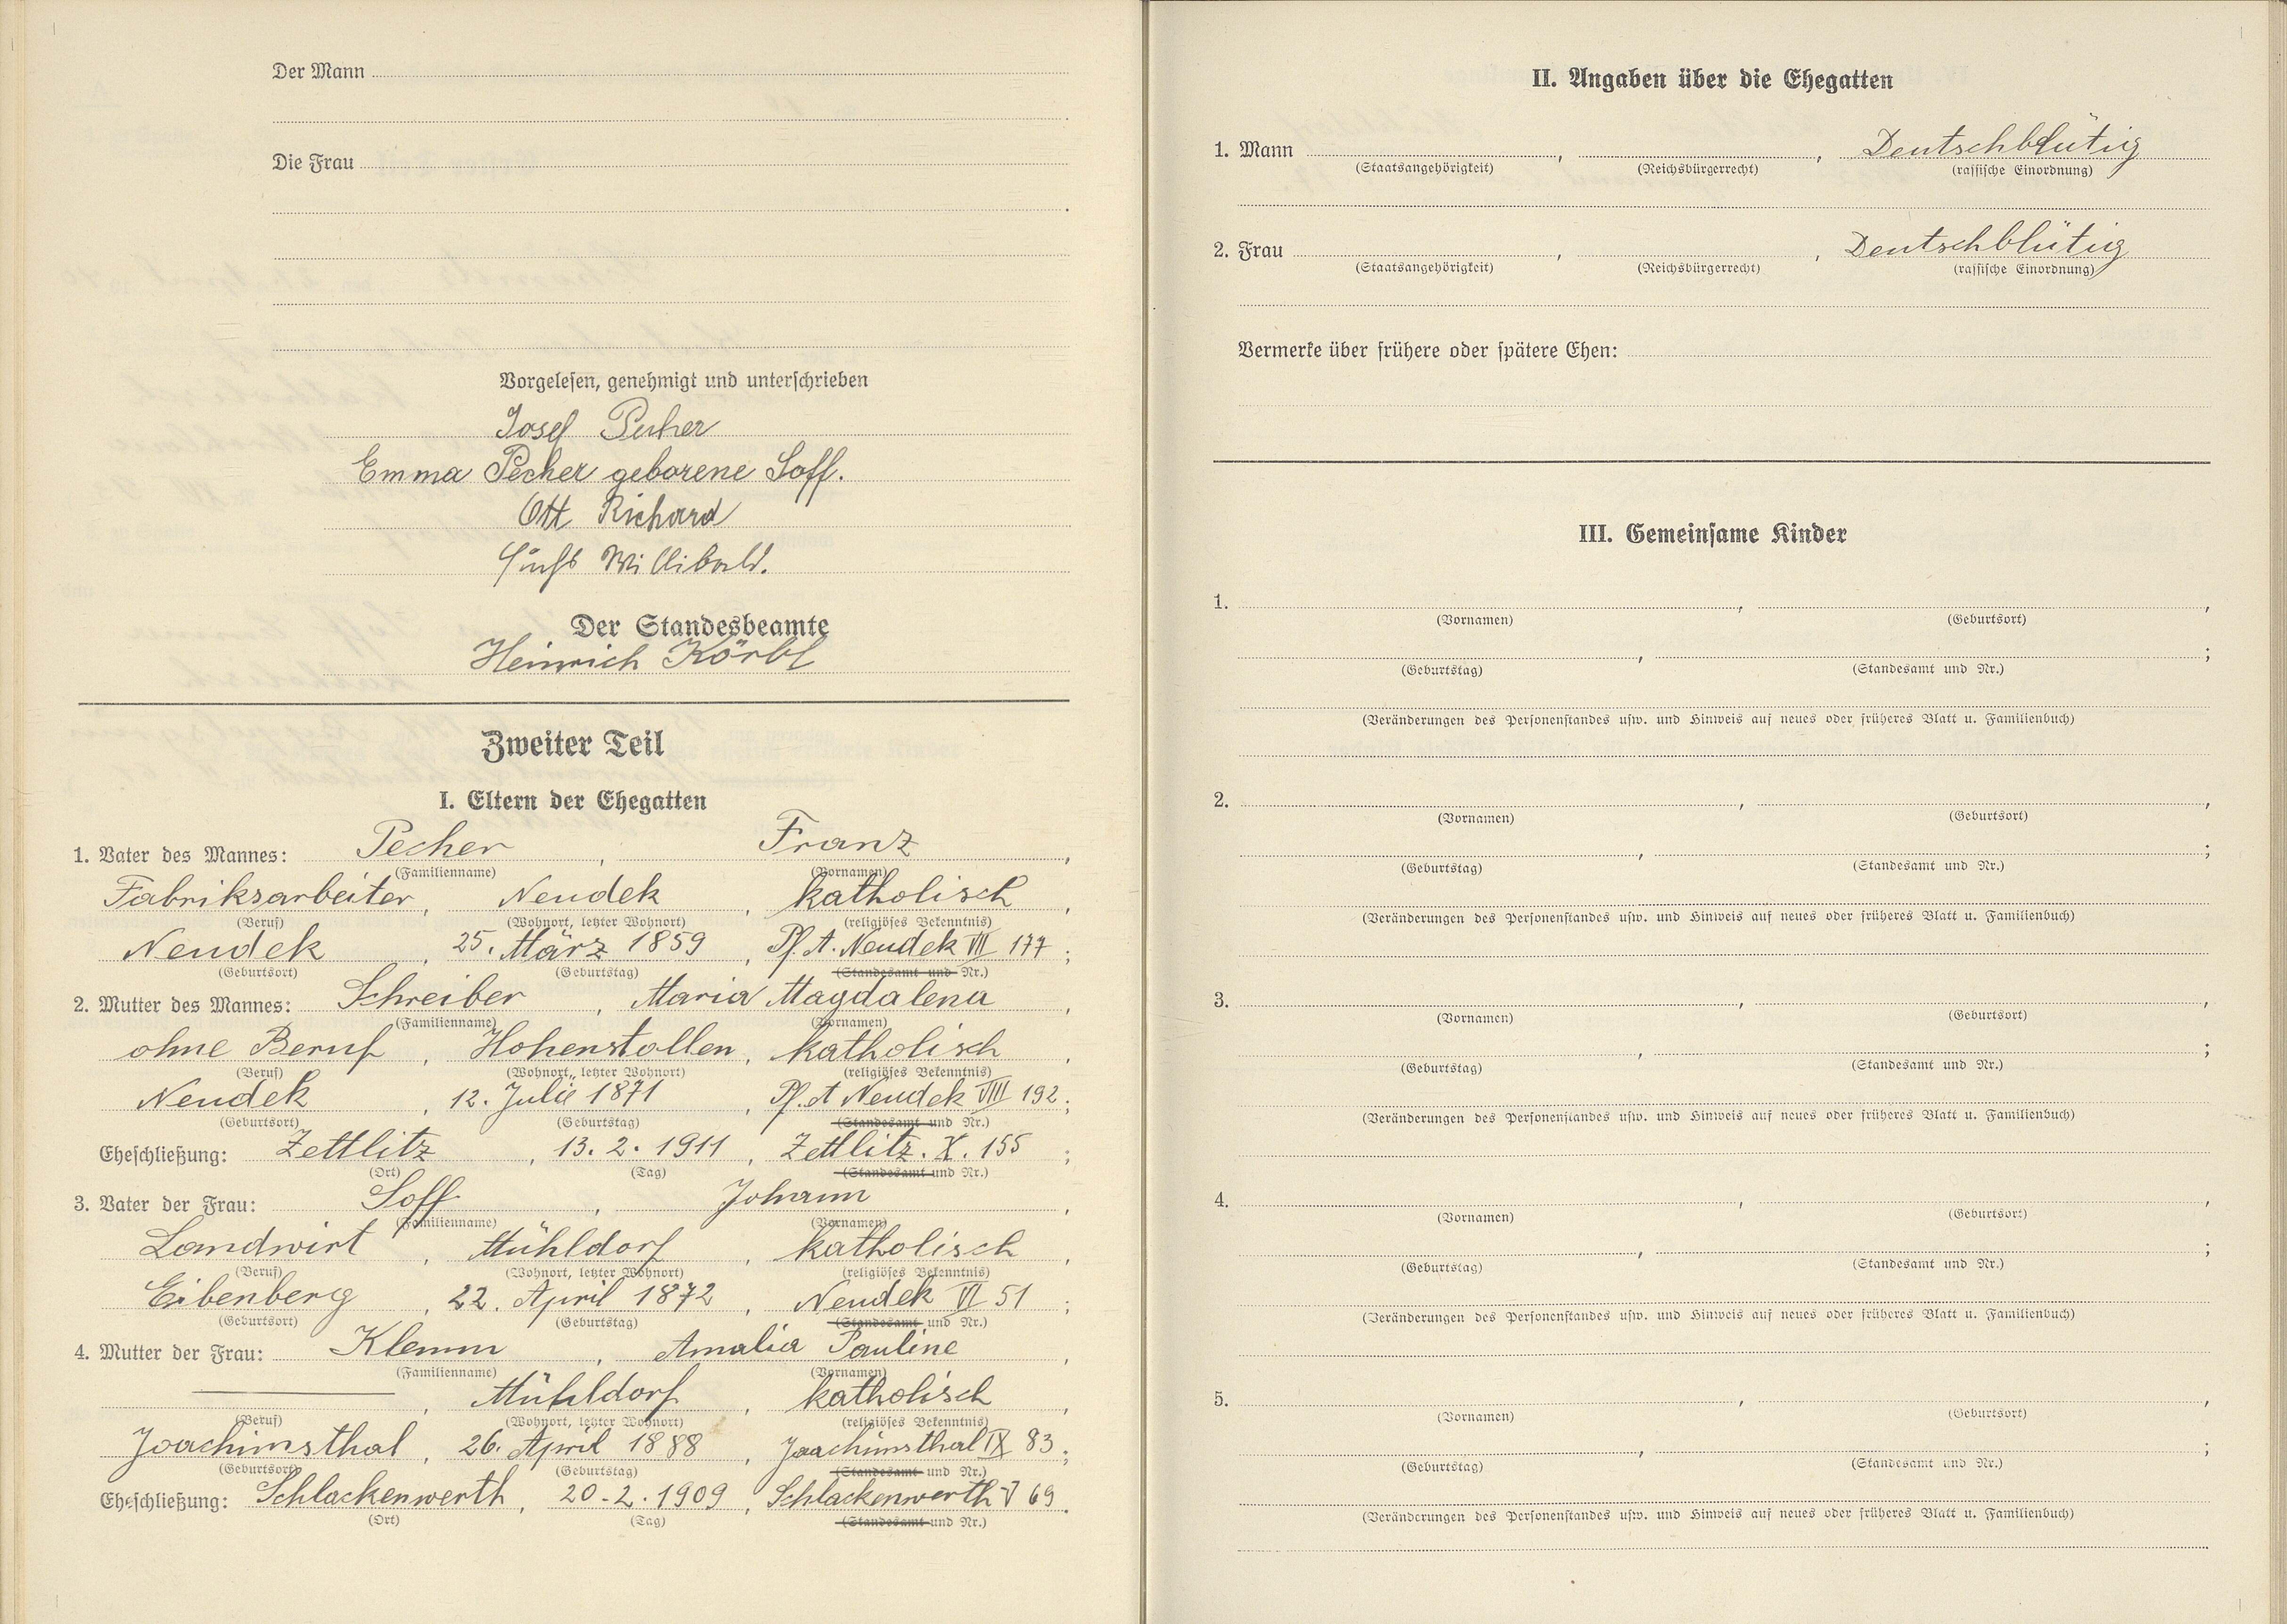 Der Mann
Die Frau
Vorgelesen, genehmigt und unterschrieben
Josef Pecher
Emma Pecher geborene Soff.
Ott Richard
Fuchs Willibald.
Der Standesbeamte
Heinrich Körbl
Zweiter Teil
I. Eltern der Ehegatten
1. Vater des Mannes: Pecher, Franz,
(Familienname) (Vornamen)
Fabriksarbeiter, Neudek, katholisch,
(Beruf) (Wohnort, letzter Wohnort) (religiöses Bekenntnis)
Neudek, 25. März 1859, Pf. A. Neudek VII 177;
(Geburtsort) (Geburtstag) (Standesamt und Nr.)
2. Mutter des Mannes: Schreiber, Maria Magdalena,
(Familienname) (Vornamen)
ohne Beruf, Hohenstollen, katholisch,
(Beruf) (Wohnort, letzter Wohnort) (religiöses Bekenntnis)
Neudek, 12. Juli 1871, Pf. A Neudek VIII 192;
(Geburtsort) (Geburtstag) (Standesamt und Nr.)
Eheschließung: Zettlitz, 13. 2. 1911, Zettlitz. X. 155;
(Ort) (Tag) (Standesamt und Nr.)
3. Vater der Frau: Soff, Johann,
(Familienname) (Vornamen)
Landwirt, Mühldorf, katholisch,
(Beruf) (Wohnort, letzter Wohnort) (religiöses Bekenntnis)
Eibenberg, 22. April 1872, Neudek VI 51;
(Geburtsort) (Geburtstag) (Standesamt und Nr.)
4. Mutter der Frau: Klemm, Amalia Pauline,
(Familienname) (Vornamen)
, Mühldorf, katholisch,
(Beruf) (Wohnort, letzter Wohnort) (religiöses Bekenntnis)
Joachimsthal, 26. April 1888, Joachimsthal IX 83;
(Geburtsort) (Geburtstag) (Standesamt und Nr.)
Eheschließung: Schlackenwerth, 20. 2. 1909, Schlackenwerth 69.
(Ort) (Tag) (Standesamt und Nr.)
II. Angaben über die Ehegatten
1. Mann , , Deutschblütig
(Staatsangehörigkeit) (Reichsbürgerrecht) (rassische Einordnung)
2. Frau , , Deutschblütig
(Staatsangehörigkeit) (Reichsbürgerrecht) (rassische Einordnung)
Vermerke über frühere oder spätere Ehen:
III. Gemeinsame Kinder
1. , ,
(Vornamen) (Geburtsort)
, ;
(Geburtstag) (Standesamt und Nr.)
(Veränderungen des Personenstandes usw. und Hinweis auf neues oder früheres Blatt u. Familienbuch)
2. , ,
(Vornamen) (Geburtsort)
, ;
(Geburtstag) (Standesamt und Nr.)
(Veränderungen des Personenstandes usw. und Hinweis auf neues oder früheres Blatt u. Familienbuch)
3. , ,
(Vornamen) (Geburtsort)
, ;
(Geburtstag) (Standesamt und Nr.)
(Veränderungen des Personenstandes usw. und Hinweis auf neues oder früheres Blatt u. Familienbuch)
4. , ,
(Vornamen) (Geburtsort)
, ;
(Geburtstag) (Standesamt und Nr.)
(Veränderungen des Personenstandes usw. und Hinweis auf neues oder früheres Blatt u. Familienbuch)
5. , ,
(Vornamen) (Geburtsort)
, ;
(Geburtstag) (Standesamt und Nr.)
(Veränderungen des Personenstandes usw. und Hinweis auf neues oder früheres Blatt u. Familienbuch)